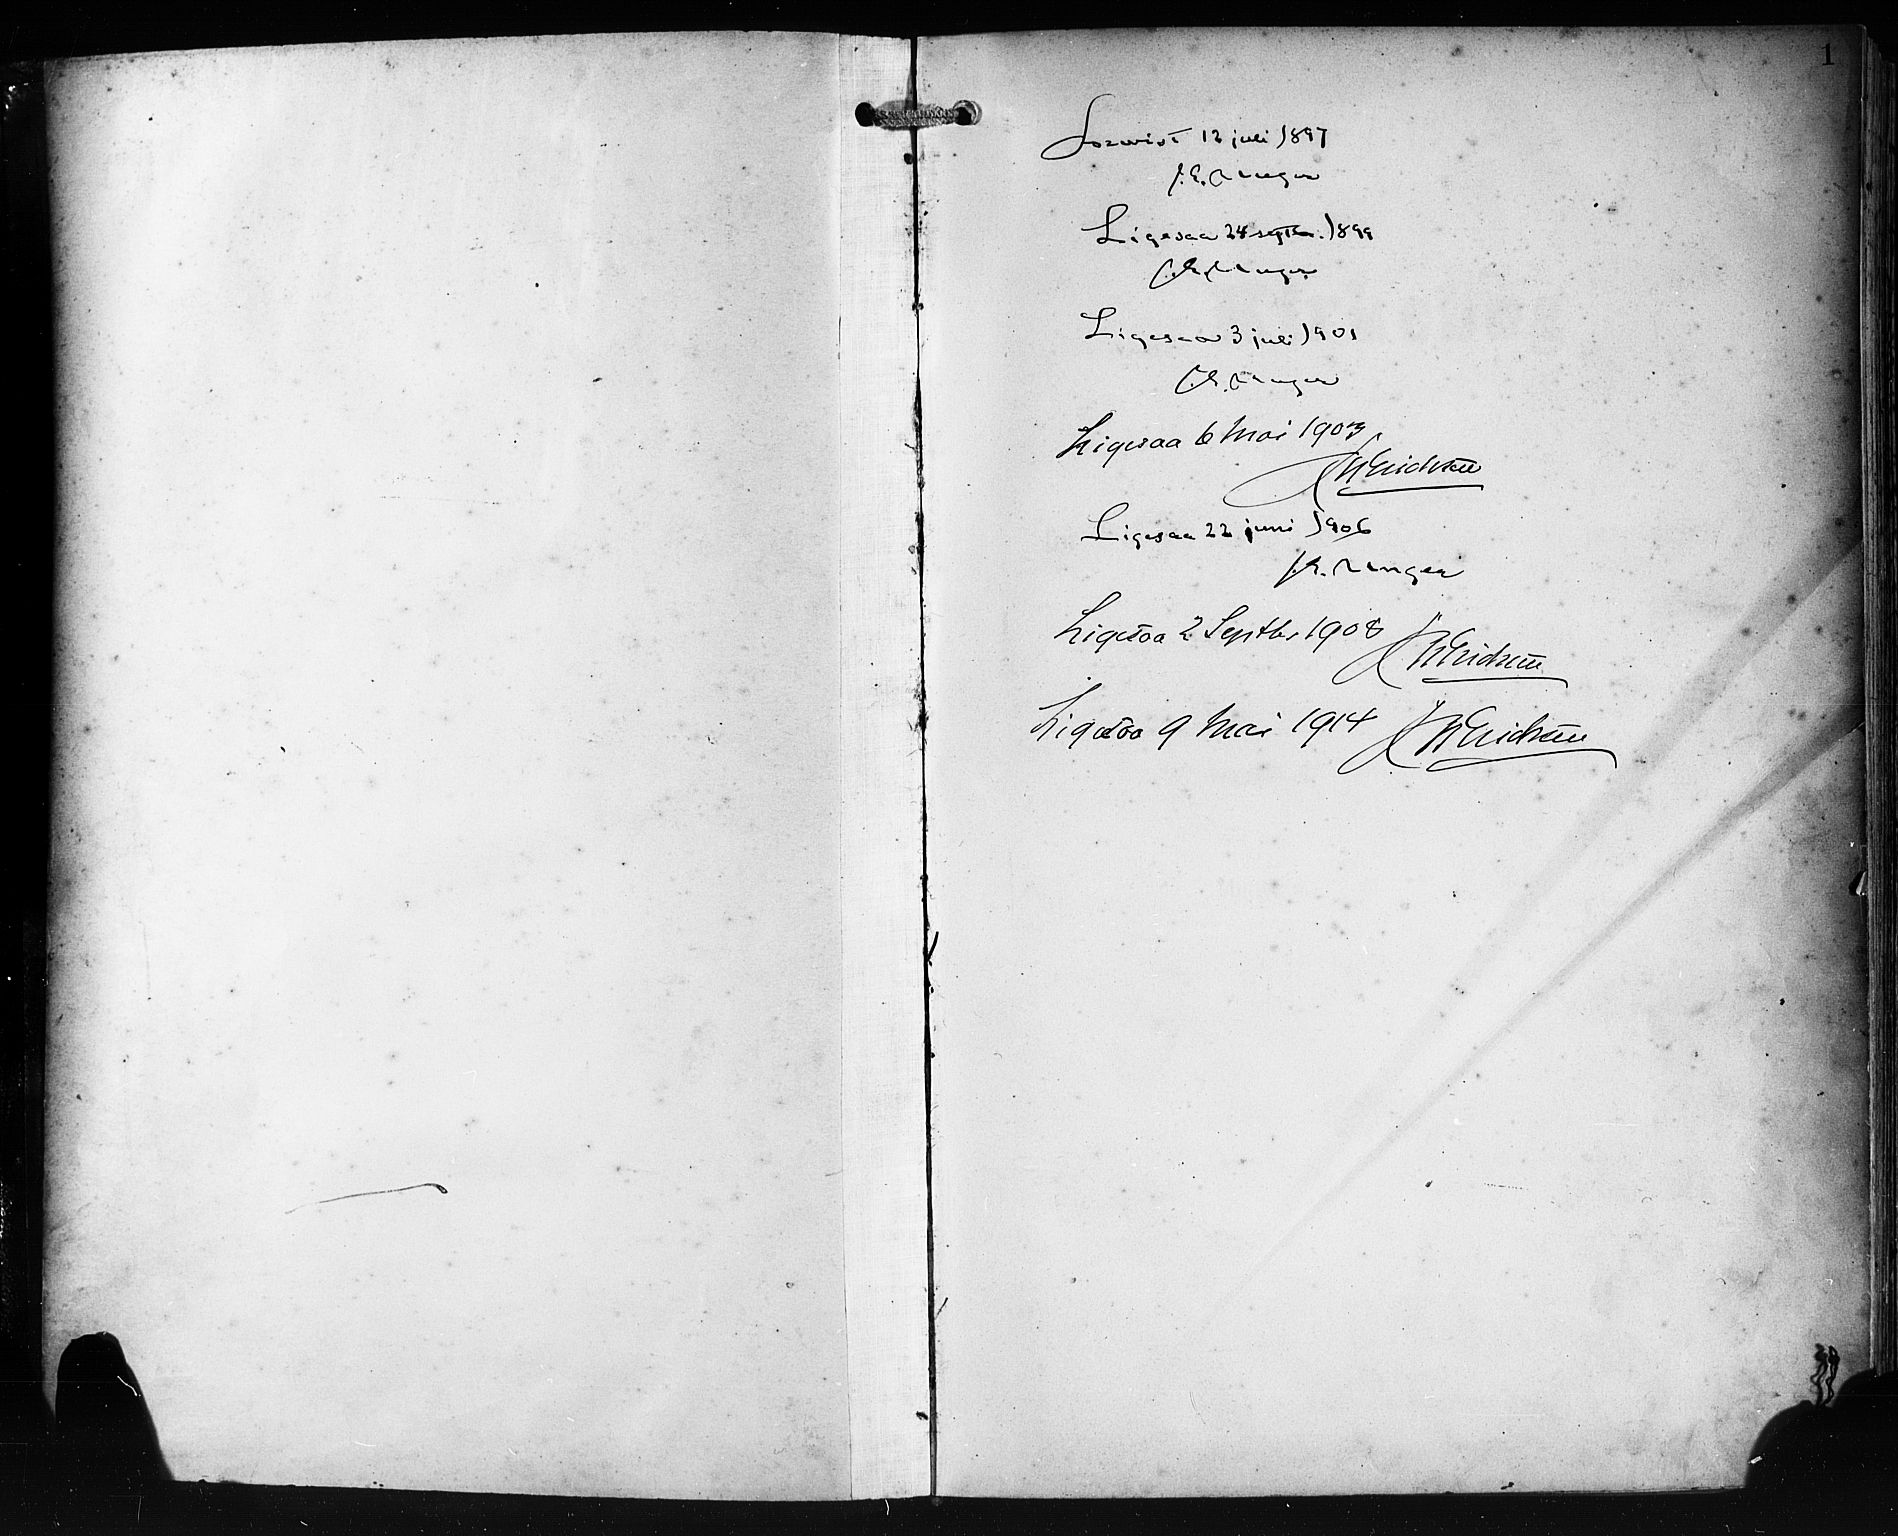 1
Forevist 12 juli 1897
J. E. Unger
Ligesaa 24 septb. 1899
J. E. Unger
Ligesaa 3 juli 1901
J. E. Unger
Ligesaa 6 Mai 1903
Erichsen
Ligesaa 22 juni 1906
J. E. Unger
Ligesaa 2 Septbr 1908 Erichsen
Ligesaa 9 Mai 1914 Erichsen